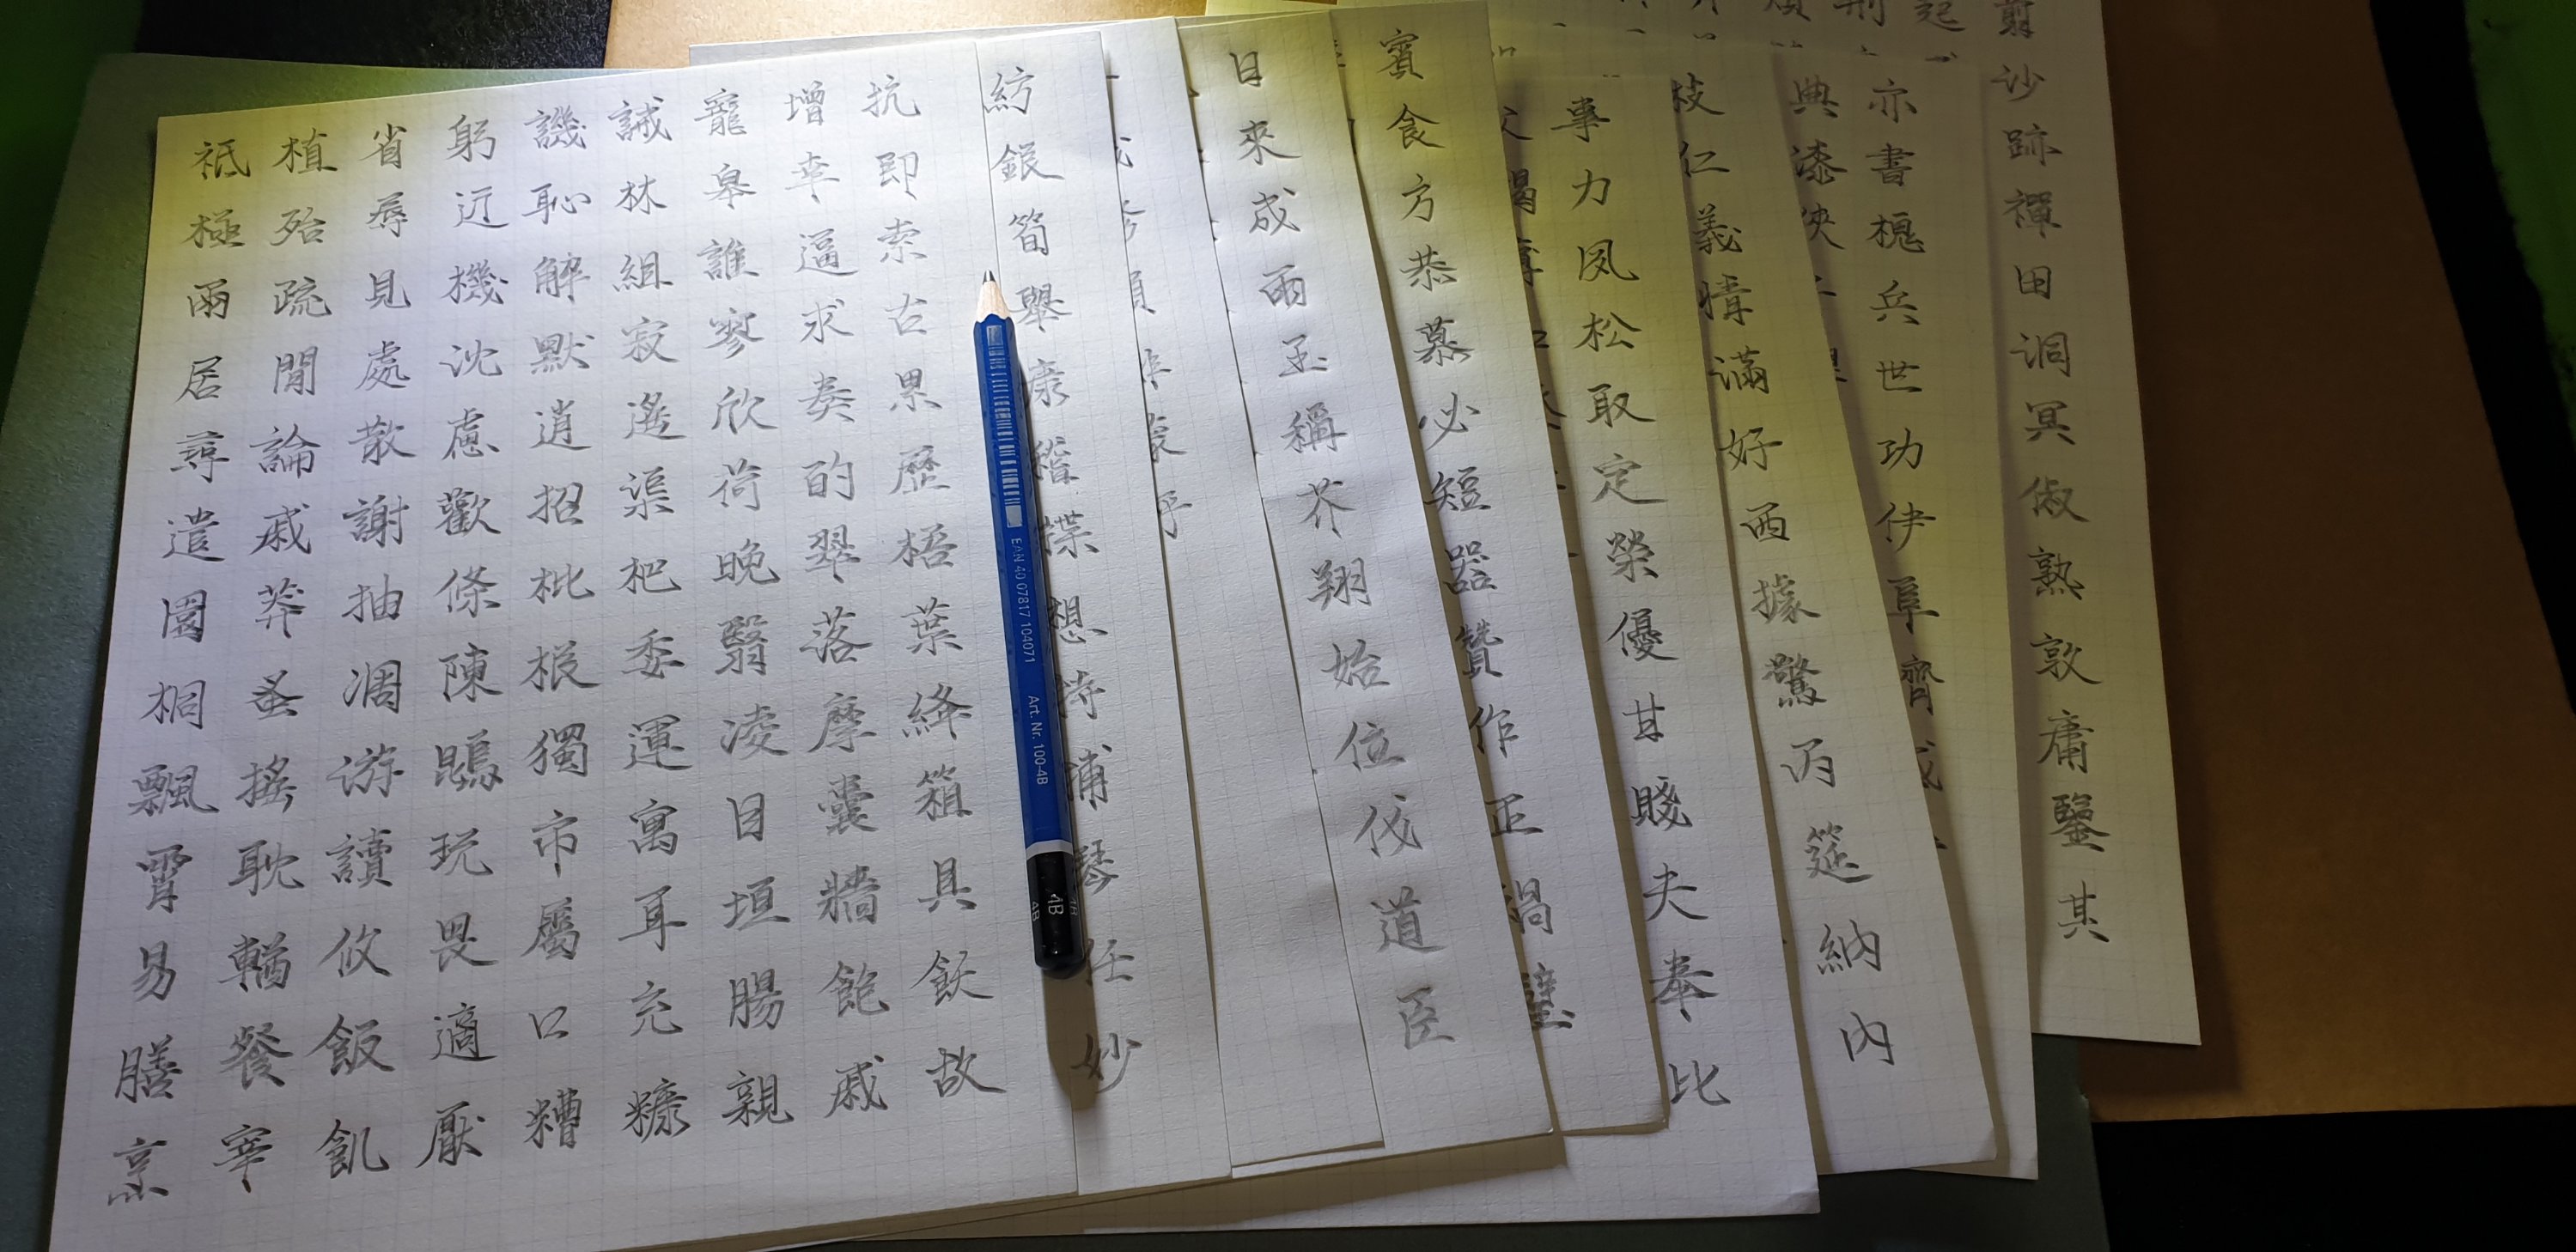 祗植省躬譏誡寵增抗
極殆辱近恥林皋幸即
兩疏見機解組誰逼索
居閒處沈默寂寥求古
尋論散慮逍遙欣奏累
遣戚謝歡招渠荷的歷
園莽抽條枇杷晚翠梧
桐蚤凋陳根委翳落葉
飄搖游鵾獨運凌摩絳
霄耽讀玩市寓目囊箱
易輶攸畏屬耳垣牆具
膳餐飯適口充腸飽飫
烹宰飢厭糟糠親戚故
紡銀筍舉康稽牒想持浦琴任妙
EAN 40 07817 104071 Art. Nr. 100-4B
4B
日來成雨玉稱芥翔始位伐道臣
賓食方恭慕必短器贊作正禍璧
事力夙松取定榮優甚賤夫奉比
枝仁義情滿好西據驚丙筵納內
典漆俠
亦書槐兵世功伊阜濟
翦沙跡禪田洞冥俶熟敦庸鑒其